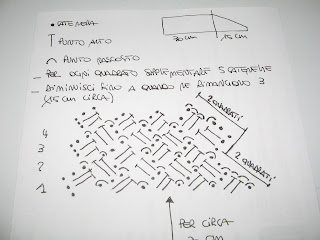 • CATENELLA
PUNTO ALTO
PUNTO NASCOSTO
30 CM
15 CM
- PER OGNI QUADRATO SUPLEMENTARE 5 CATENELLE
- DIMINUISCI FINO A QUANDO NE RIMANGONO 3
(15 CM CIRCA)
2 QUADRATI
2 QUADRATI
4
3
2
1
PER CIRCA
CM